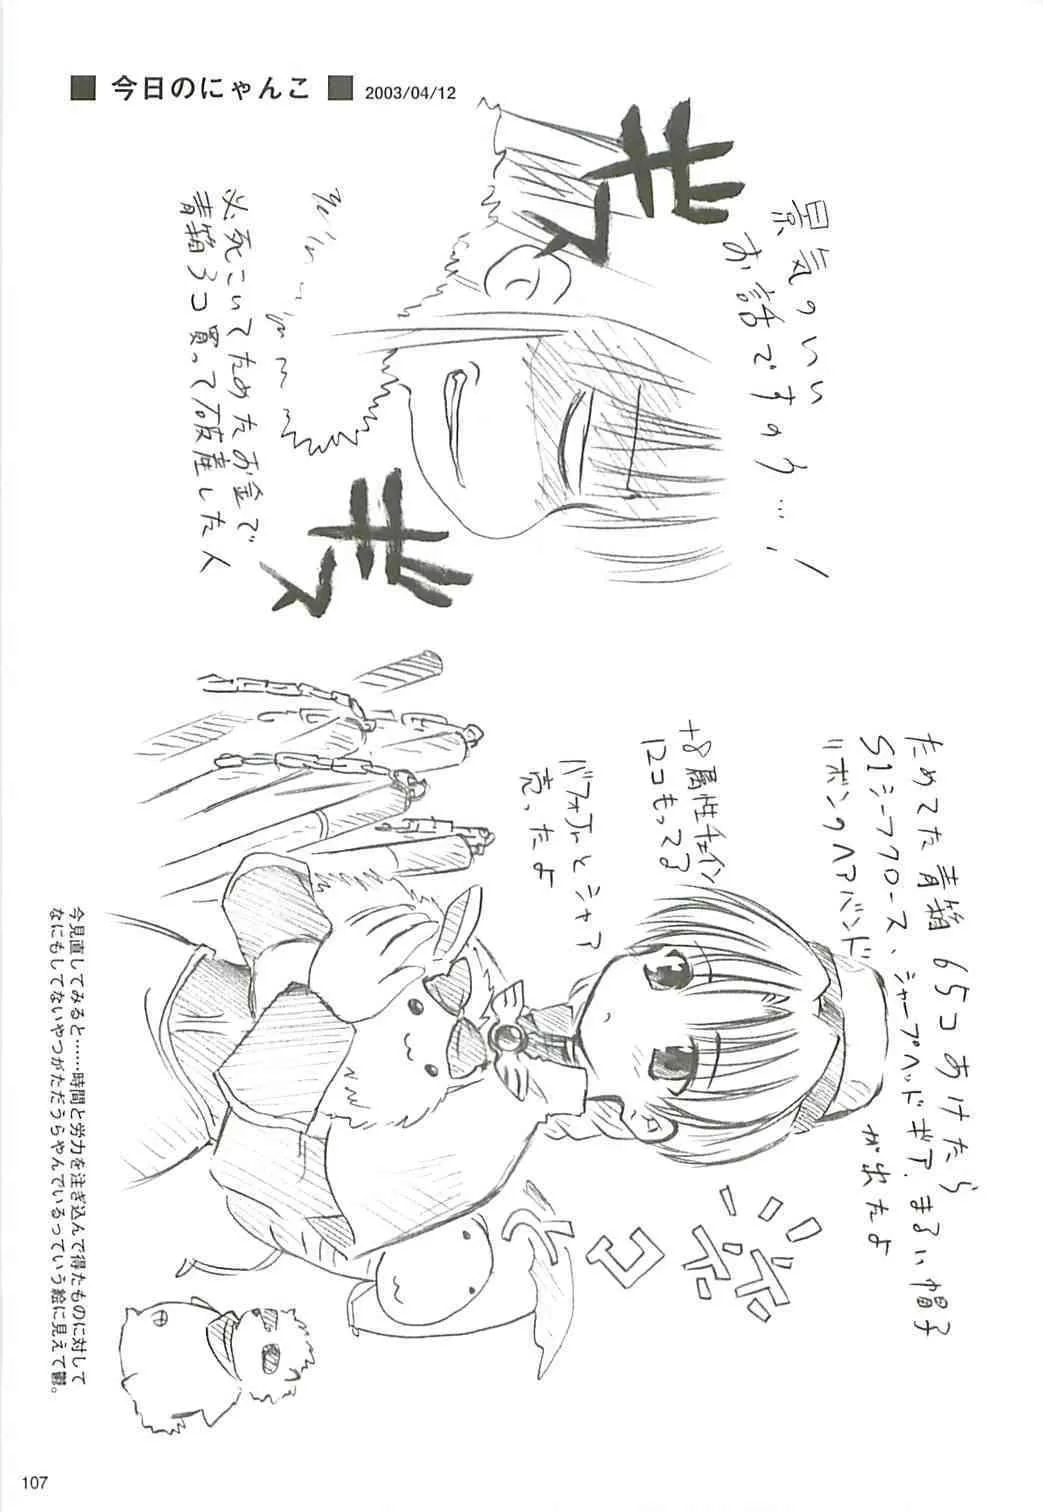 ■ 今日のにゃんこ ■ 2003/04/12
景気のいい
お話ですのう…!
ギン
ギン
必死こいてためたお金で
青箱3コ買って破産した人
ためてた青箱65コあけたら
S1シーフクロース、シャープヘッドギア、まるい帽子
リボンのヘアバンド
が出たよ
+8属性チェイン
12コもってる
バフォ介とシャア
売ったよ
ネコ
今見直してみると……時間と労力を注ぎ込んで得たものに対して
なにもしてないやつがただうらやんでいるっていう絵に見えて鬱。
107